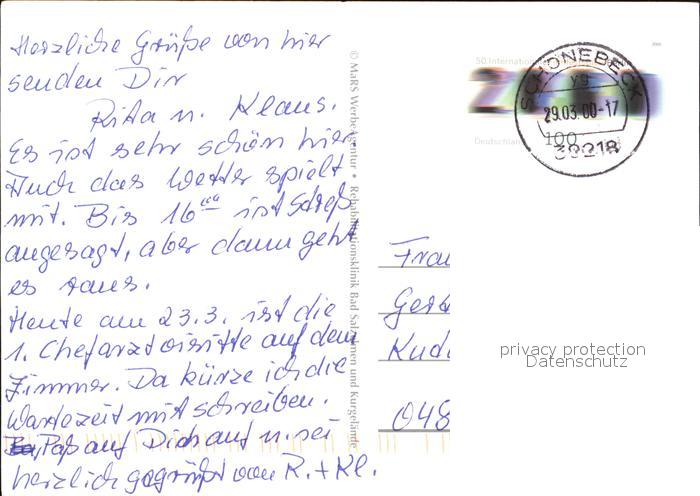 Herzliche Grüße von hier
senden Dir
Rita u. Klaus.
Es ist sehr schön hier.
Auch das Wetter spielt
mit. Bis 16ººº ist Streß
angesagt, aber dann geht
es raus.
Heute am 23.3. ist die
1. Chefarztvisite auf dem
Zimmer. Da kürze ich die
Wartezeit mit schreiben.
Paß auf Dich auf u. sei
herzlich gegrüßt von R. + Kl.
© MaRS WerbeAgentur • Rehabilitationsklinik Bad Salzelmen und Kurgelände
50 Internationale
Deutschland
100
SCHÖNEBECK
vg
29.03.00-17
39218
Frau
Kudo
048
privacy protection
Datenschutz